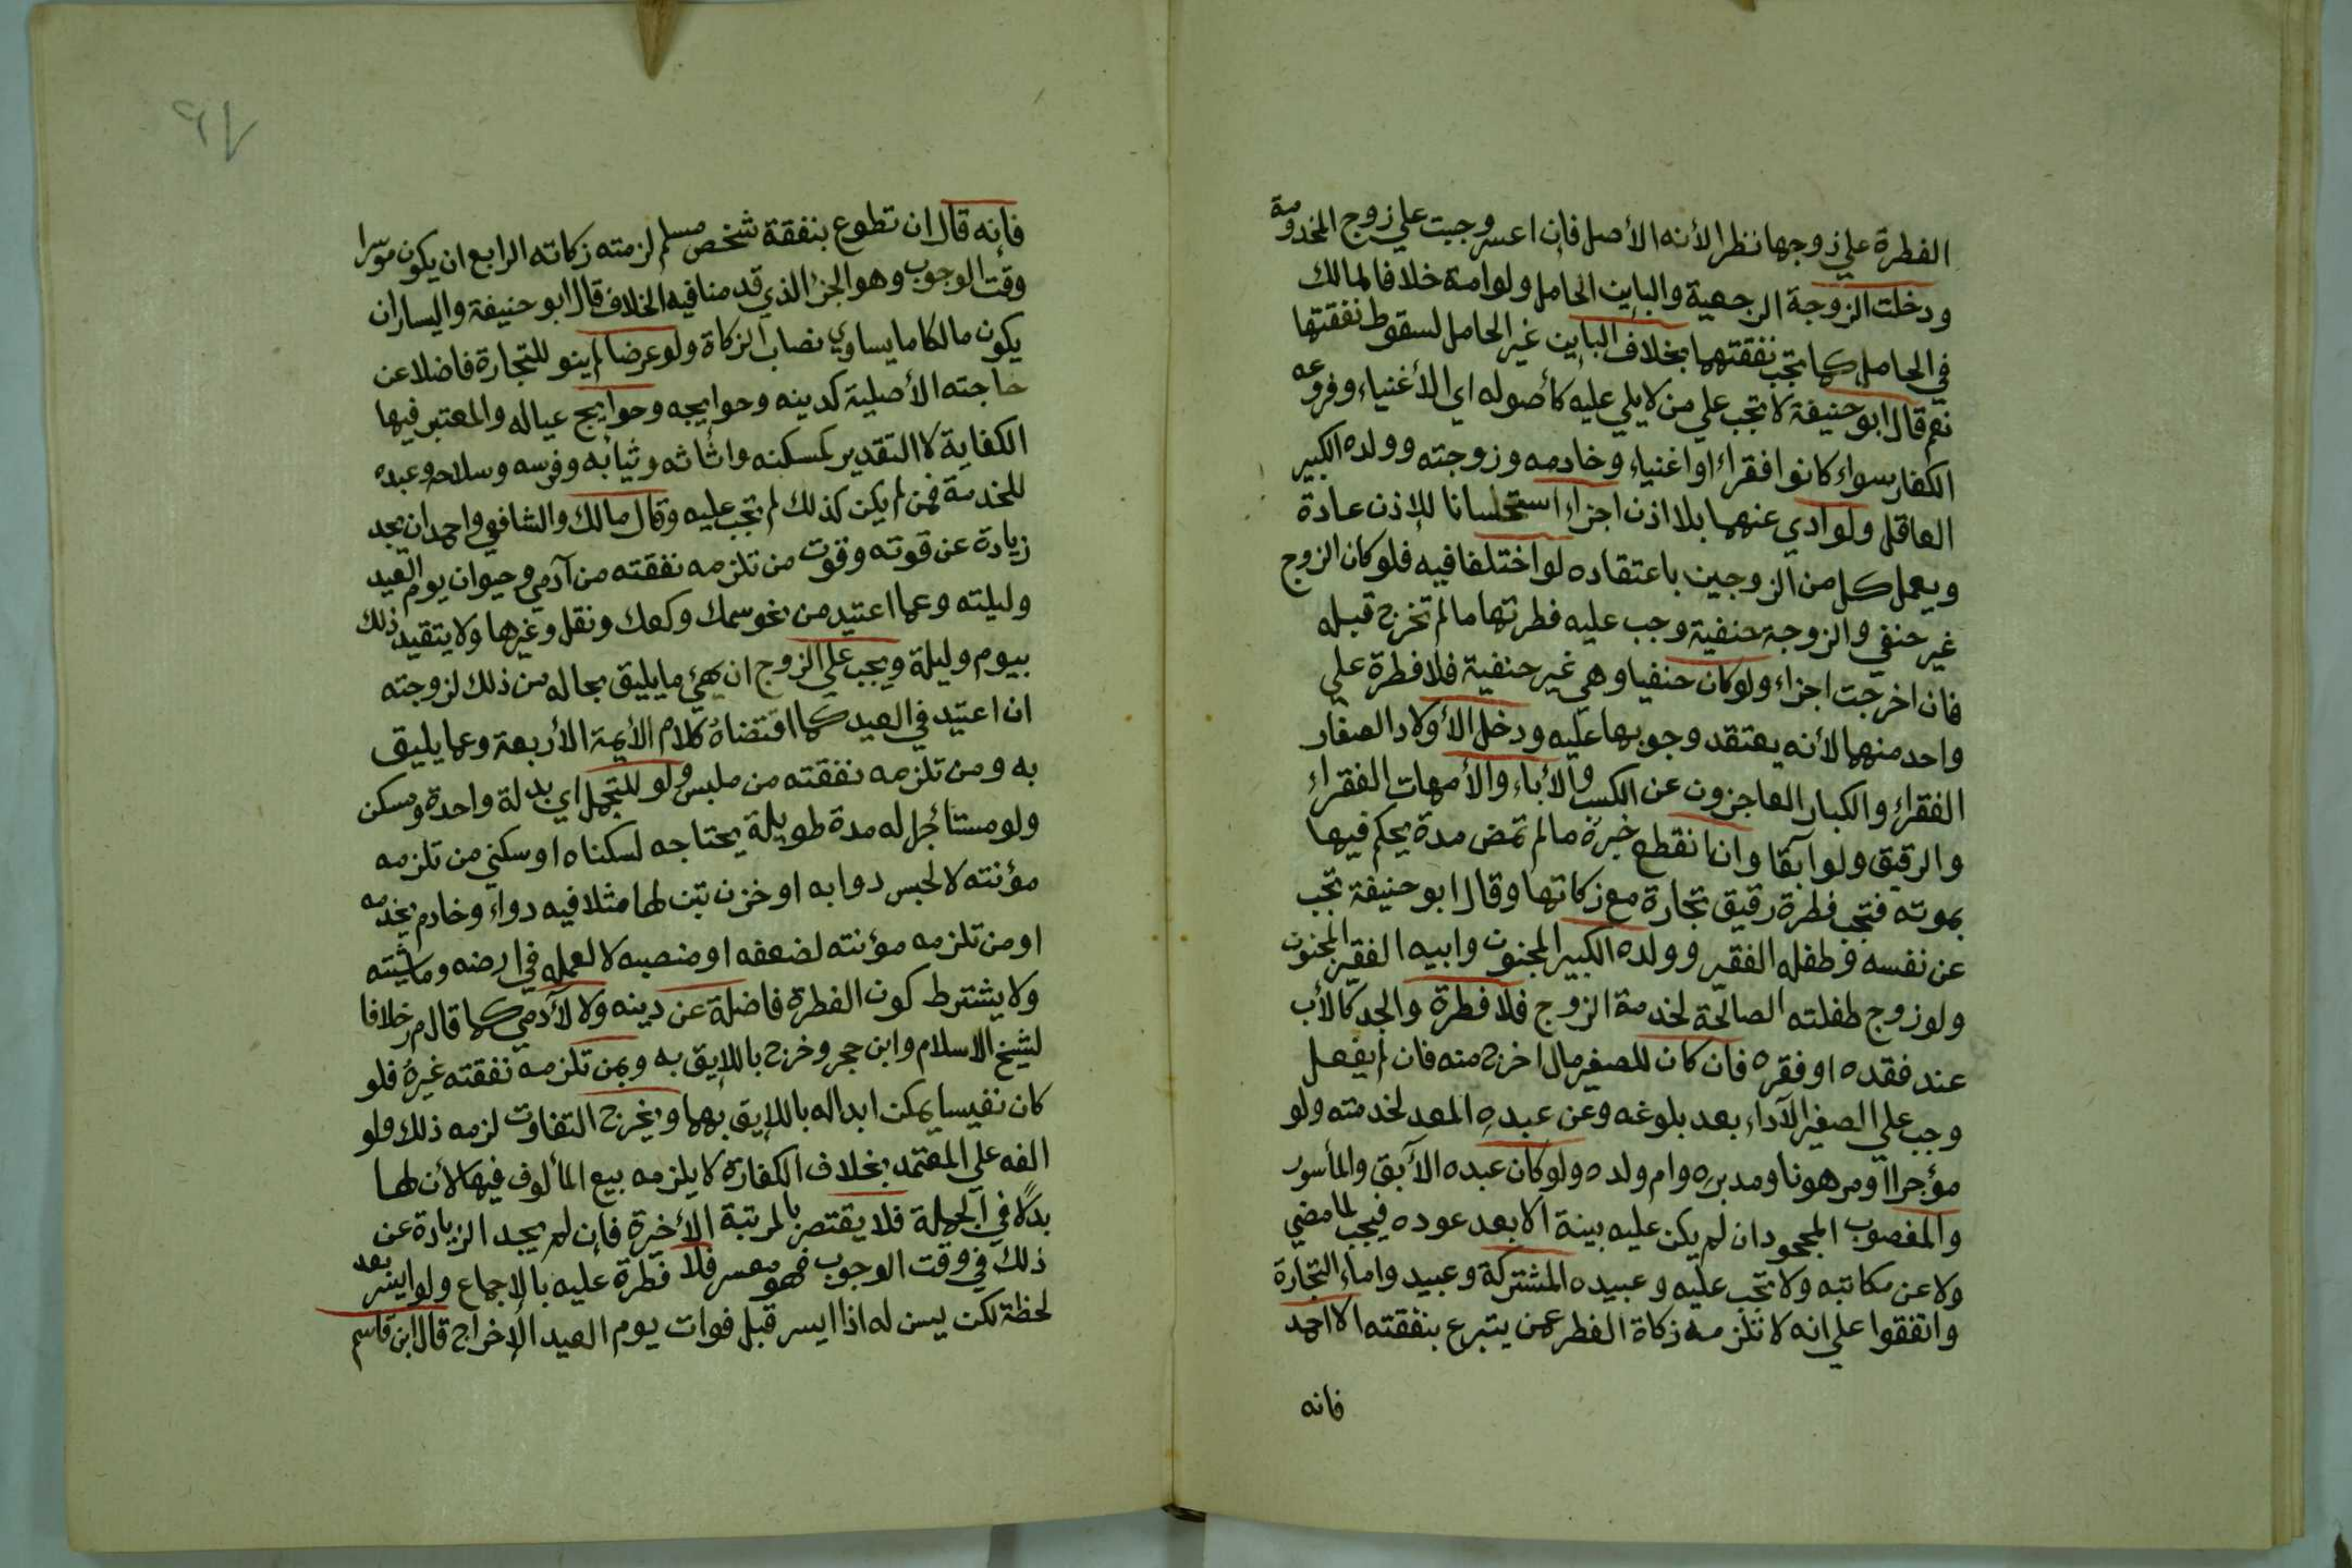 الفطرة علي زوجها نظرا لأنه الأصل فإن اعسر وجبت علي زوج المخدومة
ودخلت الزوجة الرجعية والباين الحامل ولو امة خلافا لمالك
في الحامل كما تجب نفقتهما بخلاف الباين غير الحامل لسقوط نفقتها
نعم قال ابو حنيفة لا تجب علي من لا يلي عليه كأصوله اي الأغنياء وفروعه
الكفار سواء كانوا فقراء او اغنياء وخادمه وزوجته وولده الكبير
العاقل ولو ادي عنهما بلا اذن اجزاء استحسانا للإذن عادة
ويعمل كل من الزوجين باعتقاده لو اختلفا فيه فلو كان الزوج
غير حنفي والزوجة حنفية وجب عليه فطرتها ما لم تخرج قبله
فان اخرجت اجزاء ولو كان حنفيا وهي غير حنفية فلا فطرة علي
واحد منهما لأنه يعتقد وجوبها عليه ودخل الأولاد الصغار
الفقراء والكبار العاجزون عن الكسب والأباء والأمهات الفقراء
والرقيق ولو آبقا وان انقطع خبره ما لم تمض مدة يحكم فيها
بموته فتجب فطرة رقيق تجارة مع زكاتها وقال ابو حنيفة تجب
عن نفسه وطفله الفقير وولده الكبير المجنون وابيه الفقير المجنون
ولو زوج طفلته الصالحة لخدمة الزوج فلا فطرة والجد كالأب
عند فقده او فقره فان كان للصغير مال اخرج منه فان لم يفعل
وجب علي الصغير الآداء بعد بلوغه وعن عبده المعد لخدمته ولو
مؤجرا او مرهونا ومدبره وام ولده ولو كان عبده الآبق والمأسور
والمغصوب المجحود ان لم يكن عليه بينة الا بعد عوده فيجب لما مضي
ولا عن مكاتبه ولا تجب عليه وعبيده المشتركة وعبيد واماء التجارة
واتفقوا علي انه لا تلزمه زكاة الفطر عمن يتبرع بنفقته الا احمد
فانه
فإنه قال ان تطوع بنفقة شخص مسلم لزمته زكاته الرابع ان يكون موسرا
وقت الوجوب وهو الجزء الذي قدمنا فيه الخلاف قال ابو حنيفة واليسار ان
يكون مالكا ما يساوي نصاب الزكاة ولو عرضا لم ينو للتجارة فاضلا عن
حاجته الأصلية كدينه وحوايجه وحوايج عياله والمعتبر فيها
الكفاية لا التقدير كمسكنه واثاثه وثيابه وفرسه وسلاحه وعبده
للخدمة فمن لم يكن كذلك لم تجب عليه وقال مالك والشافعي واحمد ان يجد
زيادة عن قوته وقوت من تلزمه نفقته من آدمي وحيوان يوم العيد
وليلته وعما اعتيد من نحو سمك وكعك ونقل وغيرها ولا يتقيد ذلك
بيوم وليلة ويجب علي الزوج ان يهئ ما يليق بحاله من ذلك لزوجته
ان اعتيد في العيد كما اقتضاه كلام الأيمة الأربعة وعما يليق
به ومن تلزمه نفقته من ملبس ولو للتجمل اي بدلة واحدة ومسكن
ولو مستأجر له مدة طويلة يحتاجه لسكناه او سكني من تلزمه
مؤنته لا لحبس دوابه او خزن تبن لها مثلا فيه دواء وخادم يخدمه
او من تلزمه مؤنته لضعفه او منصبه لا لعمله في ارضه وماشيته
ولا يشترط كون الفطرة فاضلة عن دينه ولا لآدمي كما قال م ر خلافا
لشيخ الاسلام وابن حجر وخرج باللايق به وبمن تلزمه نفقته غيره فلو
كان نفيسا يمكن ابداله باللايق بهما ويخرج التفاوت لزمه ذلك ولو
الفه علي المعتمد بخلاف الكفارة لا يلزمه بيع المألوف فيها لأن لها
بدلًا في الجملة فلا يقتصر بالمرتبة الأخيرة فإن لم يجد الزيادة عن
ذلك في وقت الوجوب فهو معسر فلا فطرة عليه بالإجماع ولو ايسر بعد
لحظة لكن يسن له اذا ايسر قبل فوات يوم العيد الإخراج قال ابن قاسم